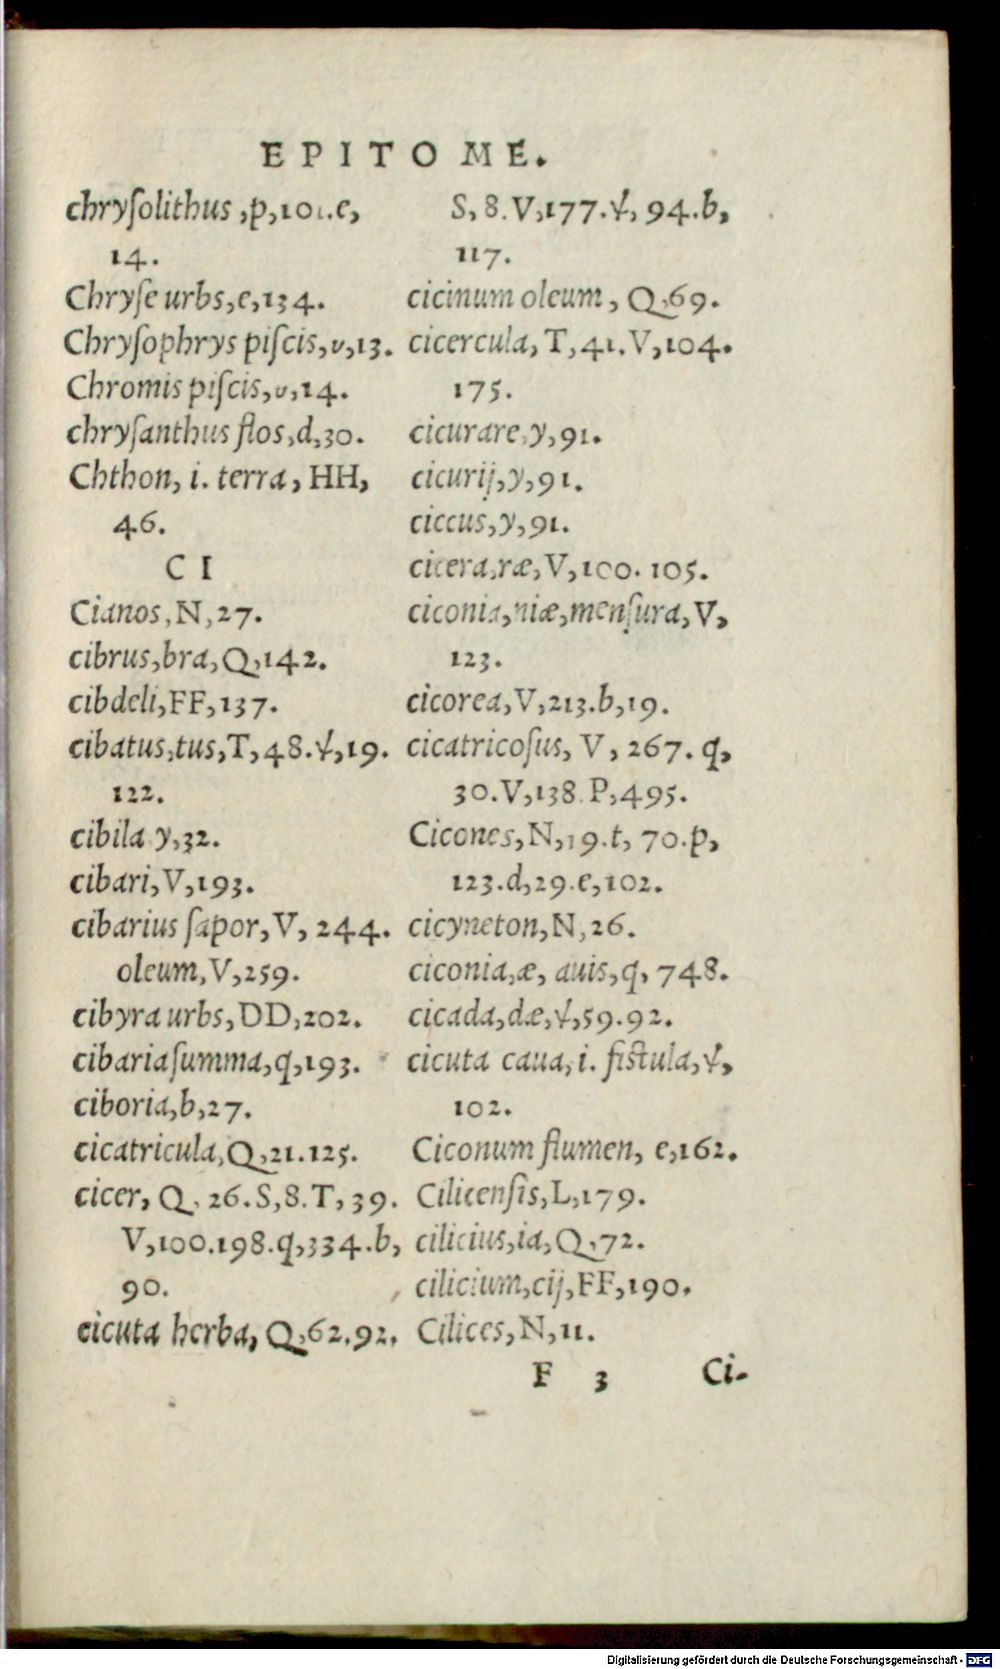 EPITOME.
chryſolithus,p,101.e,
14.
Chryſe urbs,e,134.
Chryſophrys piſcis,υ,13.
Chromis piſcis,υ,14.
chryſanthus flos,d,30.
Chthon, i. terra, HH,
46.
C I
Cianos,N,27.
cibrus,bra,Q,142.
cibdeli,FF,137.
cibatus,tus,T,48.ψ,19.
122.
cibila y,32.
cibari,V,193.
cibarius ſapor,V, 244.
oleum,V,259.
cibyra urbs,DD,202.
cibaria ſumma,q,193.
ciboria,b,27.
cicatricula,Q,21.125.
cicer, Q, 26.S,8.T,39.
V,100.198.q,334.b,
90.
cicuta herba, Q,62.92.
S,8.V,177.ψ,94.b,
117.
cicinum oleum, Q,69.
cicercula,T,41.V,104.
175.
cicurare,y,91.
cicurij,y,91.
ciccus,y,91.
cicera,ræ,V,100.105.
ciconia,niæ,menſura,V,
123.
cicorea,V,213.b,19.
cicatricoſus, V, 267. q,
30.V,138.P,495.
Cicones,N,19.t, 70.p,
123.d,29.e,102.
cicyneton,N,26.
ciconia,æ, auis,q, 748.
cicada,dæ,ψ,59.92.
cicuta caua, i. fiſtula,ψ,
102.
Ciconum flumen, e,162.
Cilicenſis,L,179.
cilicius,ia,Q,72.
cilicium,cij,FF,190.
Cilices,N,11.
F 3 Ci-
Digitalisierung gefördert durch die Deutsche Forschungsgemeinschaft - DFG